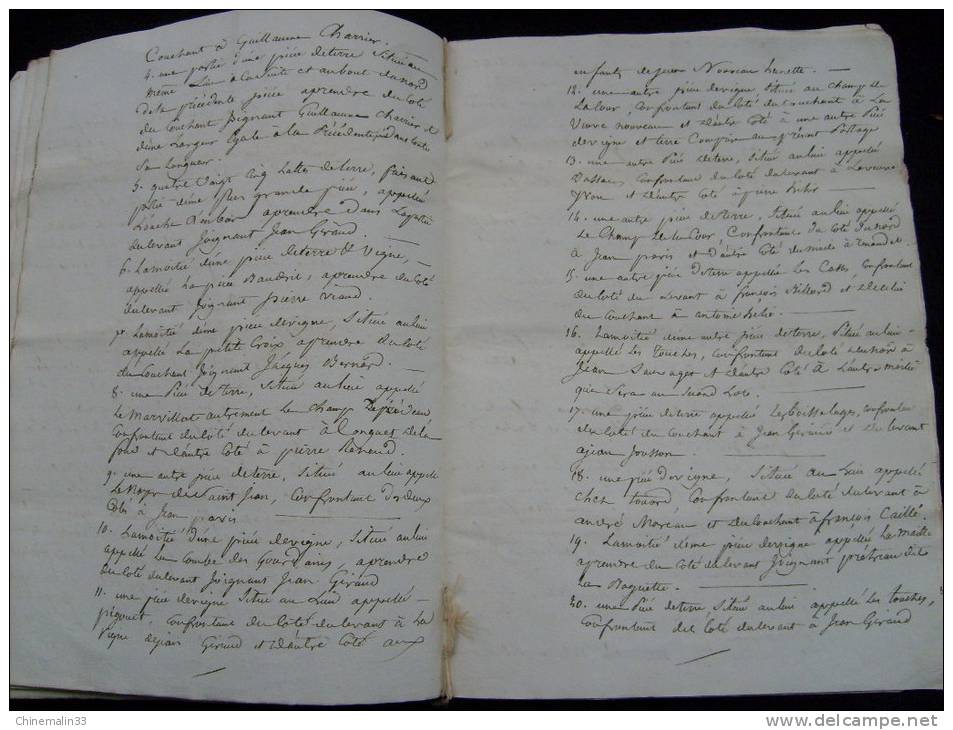 Couchant à Guillaume Charrier.
4. une partie d'une pièce deterre Située au
même Lieu et aubout du nord
dela précédente pièce aprendre du Coté
du Couchant Joignant Guillaume Charrier et
dune Largeur Egale a la Précédente, dans toute
Sa Longueur.
5. quatre Vingt Cinq Lattes deterre, faisant
partie d'une plus grande pièce, appellée
aprendre dans
dulevant Joignant Jean Giraud.
6. Lamoitié d'une pièce deterre & Vigne,
appellée La pièce Baudrit, aprendre du Coté
dulevant Joignant pierre
7. Lamoitié d'une pièce devigne, Située aulieu
appellé La petite Croix aprendre du Coté
du Couchant Joignant Jacques Bernard.
8. une Pièce deterre, Située aulieu appellé
Le Marvillat autrement Le Champ
Confrontant du Coté dulevant à Longuet dela
fond et d'autre Coté à pierre Renaud.
9. une autre pièce deterre, Située aulieu appellé
Le de Saint Jean, Confrontant des deux
Coté à Jean paris
10. Lamoitié d'une pièce devigne, Située aulieu
appellé La Combe des Gourdains aprendre
du Coté dulevant Joignant Jean Giraud
11. une pièce devigne Située au Lieu appellé
pigouet, Confrontant du Coté dulevant à La
Vigne dejean Giraud et d'autre Coté aux
enfants de Jean Noureau
12. une autre pièce devigne Située au Champ de
Lalour Confrontant du Coté du Couchant à La
Veuve nouveau et d'autre Coté à une autre Pièce
devigne et terre Comprise au présent Partage
13. une autre Pièce deterre, Située aulieu appellé
Confrontant du Coté dulevant à Laveuve
et d'autre Coté à
14. une autre pièce deterre, Située aulieu appellé
Le Champ de Lalour, Confrontant du Coté du nord
à Jean paris et d'autre Coté du midi à
15. une autre pièce deterre appellée Les Cottes, Confrontant
du Coté du Levant à françois Billard et de celui
du Couchant à antoine
16. Lamoitié d'une autre pièce deterre, Située aulieu
appellé Les Touches, Confrontant du Coté du nord à
Jean Sauvaget et d'autre Coté à Lautre moitié
qui Sera au Second Lot.
17. une pièce deterre appellée Les Boisselages, Confrontant
du Coté du Couchant à Jean Giraud et du Levant
ajean Jousson.
18. une pièce devigne, Située au Lieu appellé
Chez Confrontant du Coté dulevant à
andré Moreau et du Couchant à françois Caillé.
19. Lamoitié d'une pièce devigne appellé La
aprendre du Coté dulevant Joignant
La Baguette.
20. une Pièce deterre Située aulieu appellé Les touches,
Confrontant du Coté dulevant à Jean Giraud
Chinemalin33
www.delcampe.net